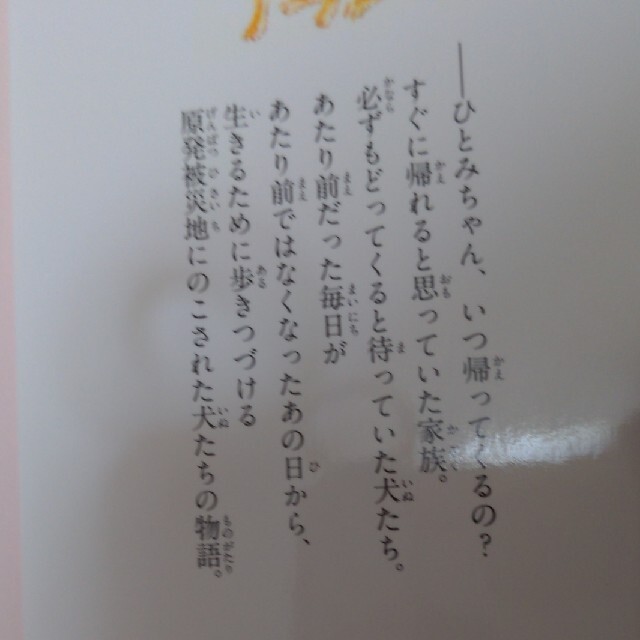 ――ひとみちゃん、いつ帰ってくるの？
すぐに帰れると思っていた家族。
必ずもどってくると待っていた犬たち。
あたり前だった毎日が
あたり前ではなくなったあの日から、
生きるために歩きつづける
原発被災地にのこされた犬たちの物語。